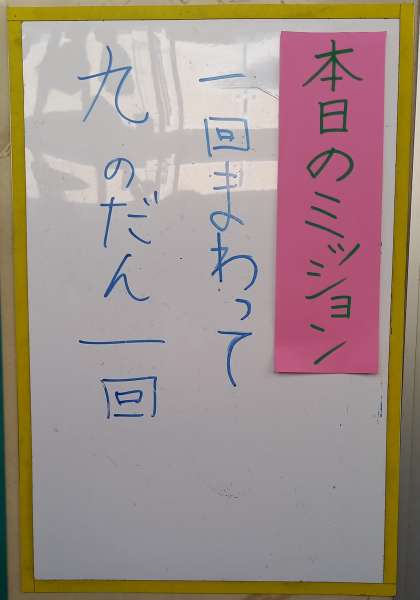 本日のミッション
一回まわって
九のだん一回